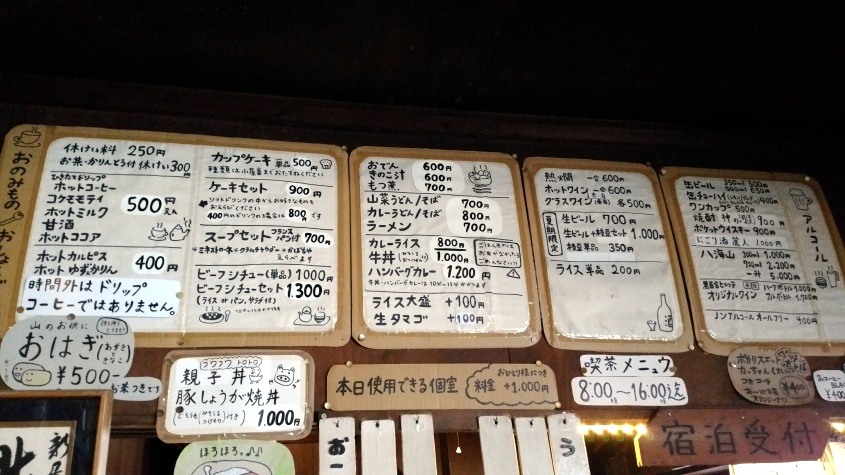 おのみもの
休けい料 250円
お茶・かりんとう付 休けい300円
ひきたてドリップ
ホットコーヒー
コケモモティ
ホットミルク
甘酒
ホットココア
500円
ホットカルピス
ホットゆずかりん
400円
時間外はドリップ
コーヒーではありません。
カップケーキ 単品500円
ケーキセット 900円
ソフトドリンクの中からお好きなものを
お えらびください
400円のドリンクの場合は800円です
スープセット フランスパン付 700円
ビーフシチュー(単品)1000円
ビーフシチューセット 1.300円
(ライス or パン、サラダ付)
おでん 600円
きのこ汁 600円
もつ煮 700円
山菜うどん/そば 700円
カレーうどん/そば 800円
ラーメン 700円
カレーライス 800円
牛丼 1.000円
ハンバーグカレー 1.200円
ライス大盛 +100円
生タマゴ +100円
熱燗 一合600円
ホットワイン 一合600円
グラスワイン 各500円
夏期限定
生ビール 700円
生ビール+枝豆セット 1.000円
枝豆単品 350円
ライス単品 200円
アルコール
缶ビール 350ml 500円
ワンカップ 500円
ポケットウイスキー 900円
にごり酒 蔵人 1.000円
八海山 300ml 1.000円
720ml 2.200円
一升 5.000円
オリジナルワイン
ノンアルコール オールフリー 400円
山のお供に
おはぎ(あずき きなこ)
¥500-
お茶つきです
親子丼
豚しょうが焼丼
1.000円
本日使用できる個室
おひとり様につき
料金 +1.000円
喫茶メニュウ
8:00~16:00迄
ポカリスエット
コカコーラ
¥400
¥400
宿泊受付
ほろほろっ♪♪